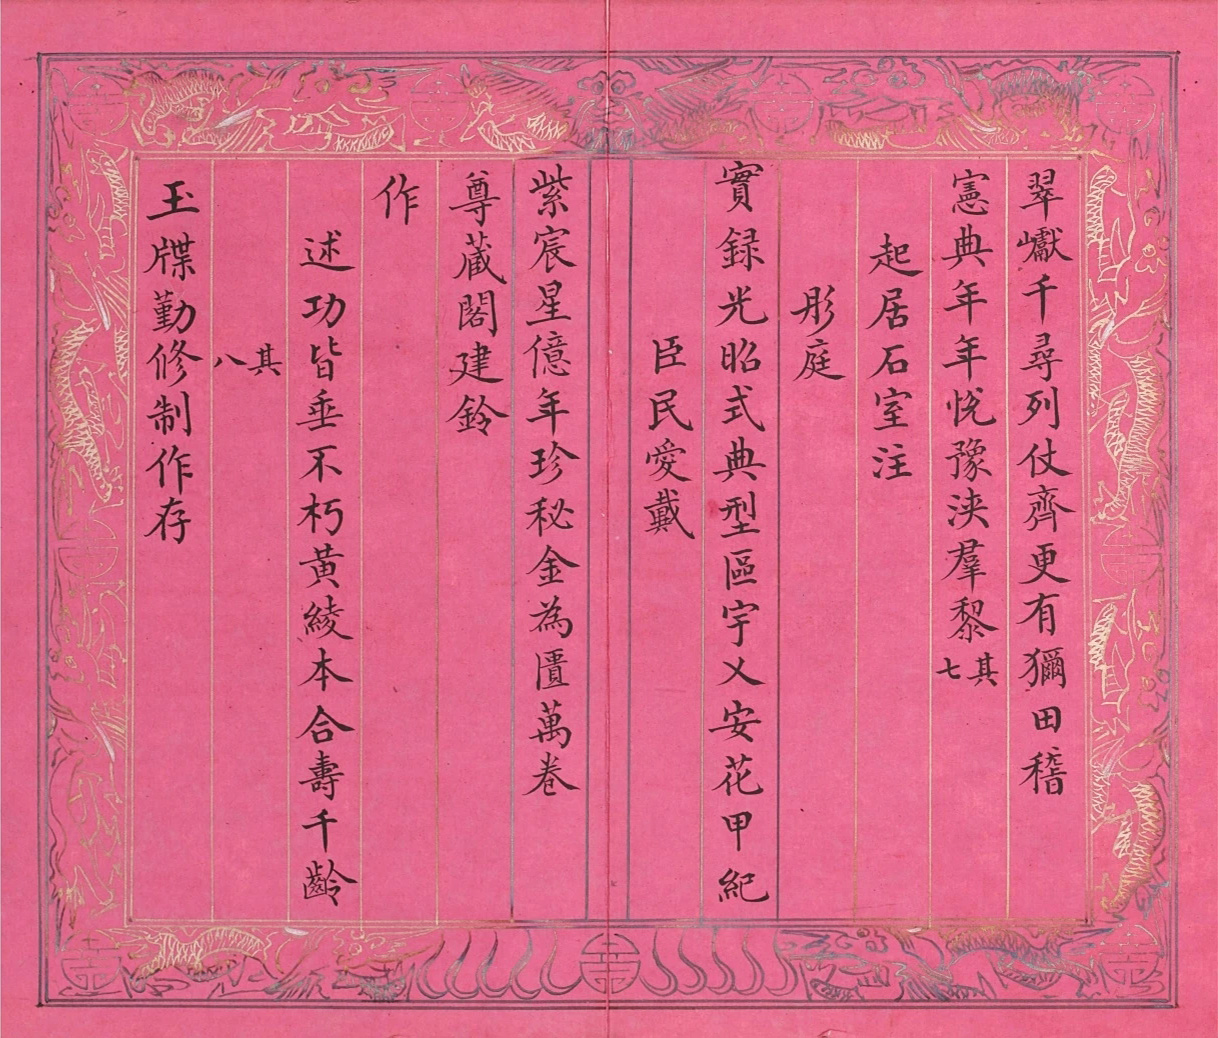 翠巘千尋列仗齊更有獮田稽
憲典年年悅豫浹羣黎其七
起居石室注
彤庭
實録光昭式典型區宇乂安花甲紀
臣民愛戴
紫宸星億年珍秘金為匱萬卷
尊藏閣建鈴
作
述功皆垂不朽黃綾本合壽千齡
其八
玉牒勤修制作存